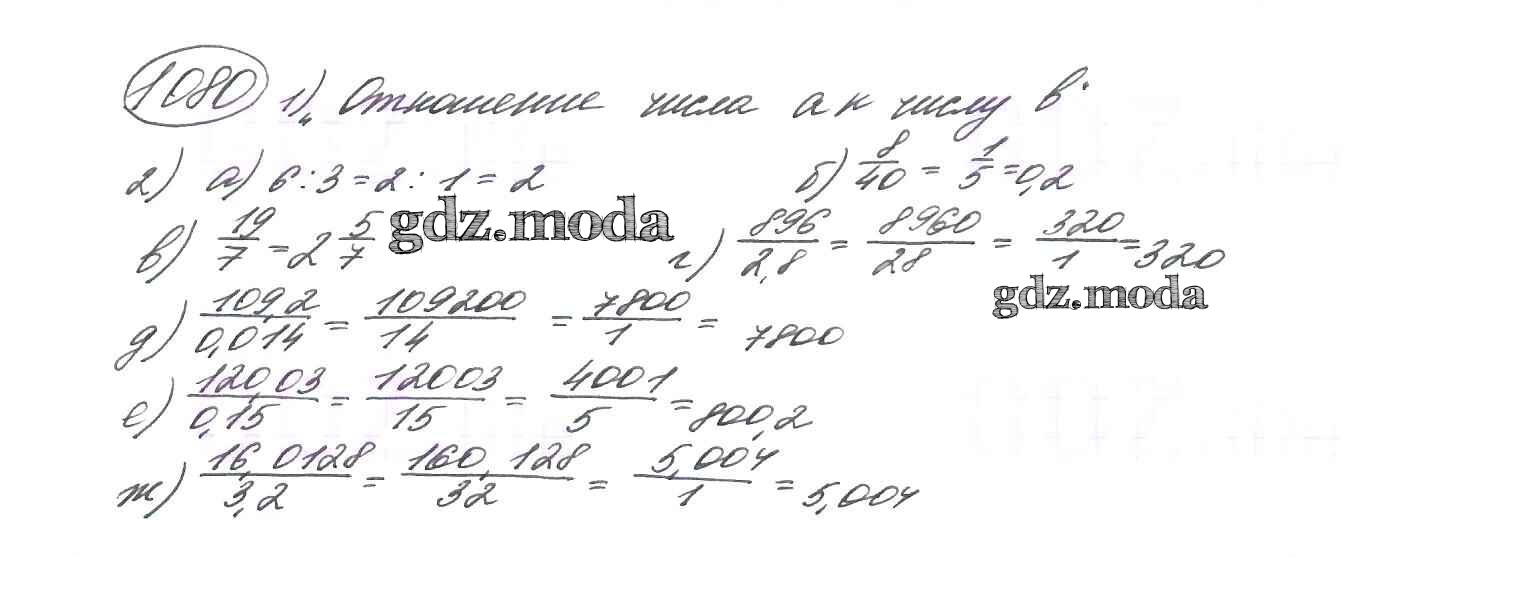 1080 1) „Отношение числа a к числу b“
2) а) 6 : 3 = 2 : 1 = 2 б) 8/40 = 1/5 = 0,2
в) 19/7 = 2 5/7 gdz.moda г) 896/2,8 = 8960/28 = 320/1 = 320
gdz.moda
д) 109,2/0,014 = 109200/14 = 7800/1 = 7800
е) 120,03/0,15 = 12003/15 = 4001/5 = 800,2
ж) 16,0128/3,2 = 160,128/32 = 5,004/1 = 5,004